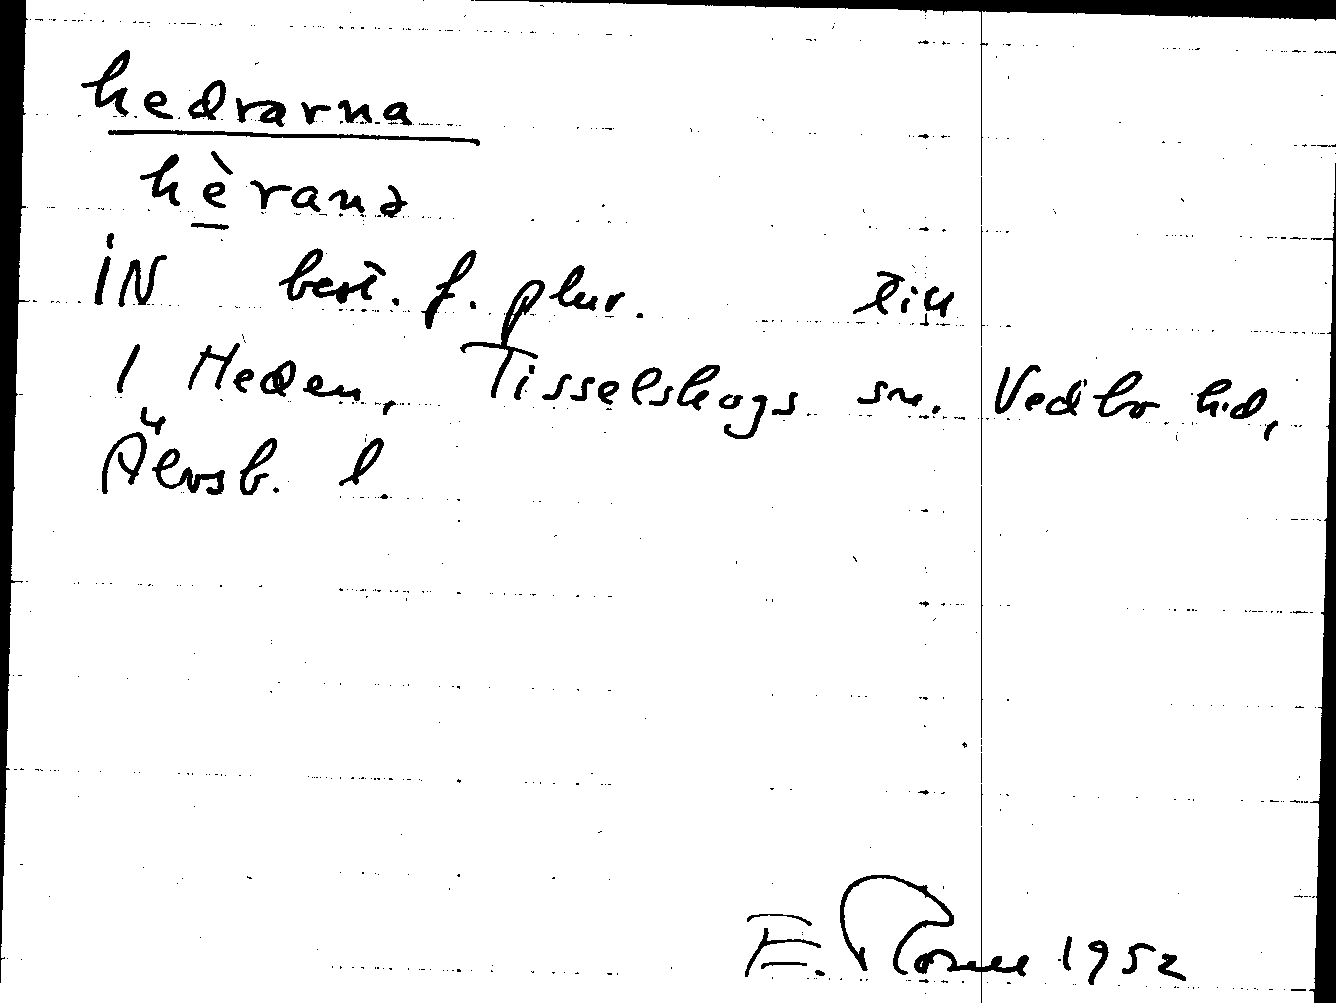 hedrarna
hèranə
IN best. f. plur. till
1 Heden, Tisselskogs sn. Vedbo hd,
Älvsb. l.
E. 1952